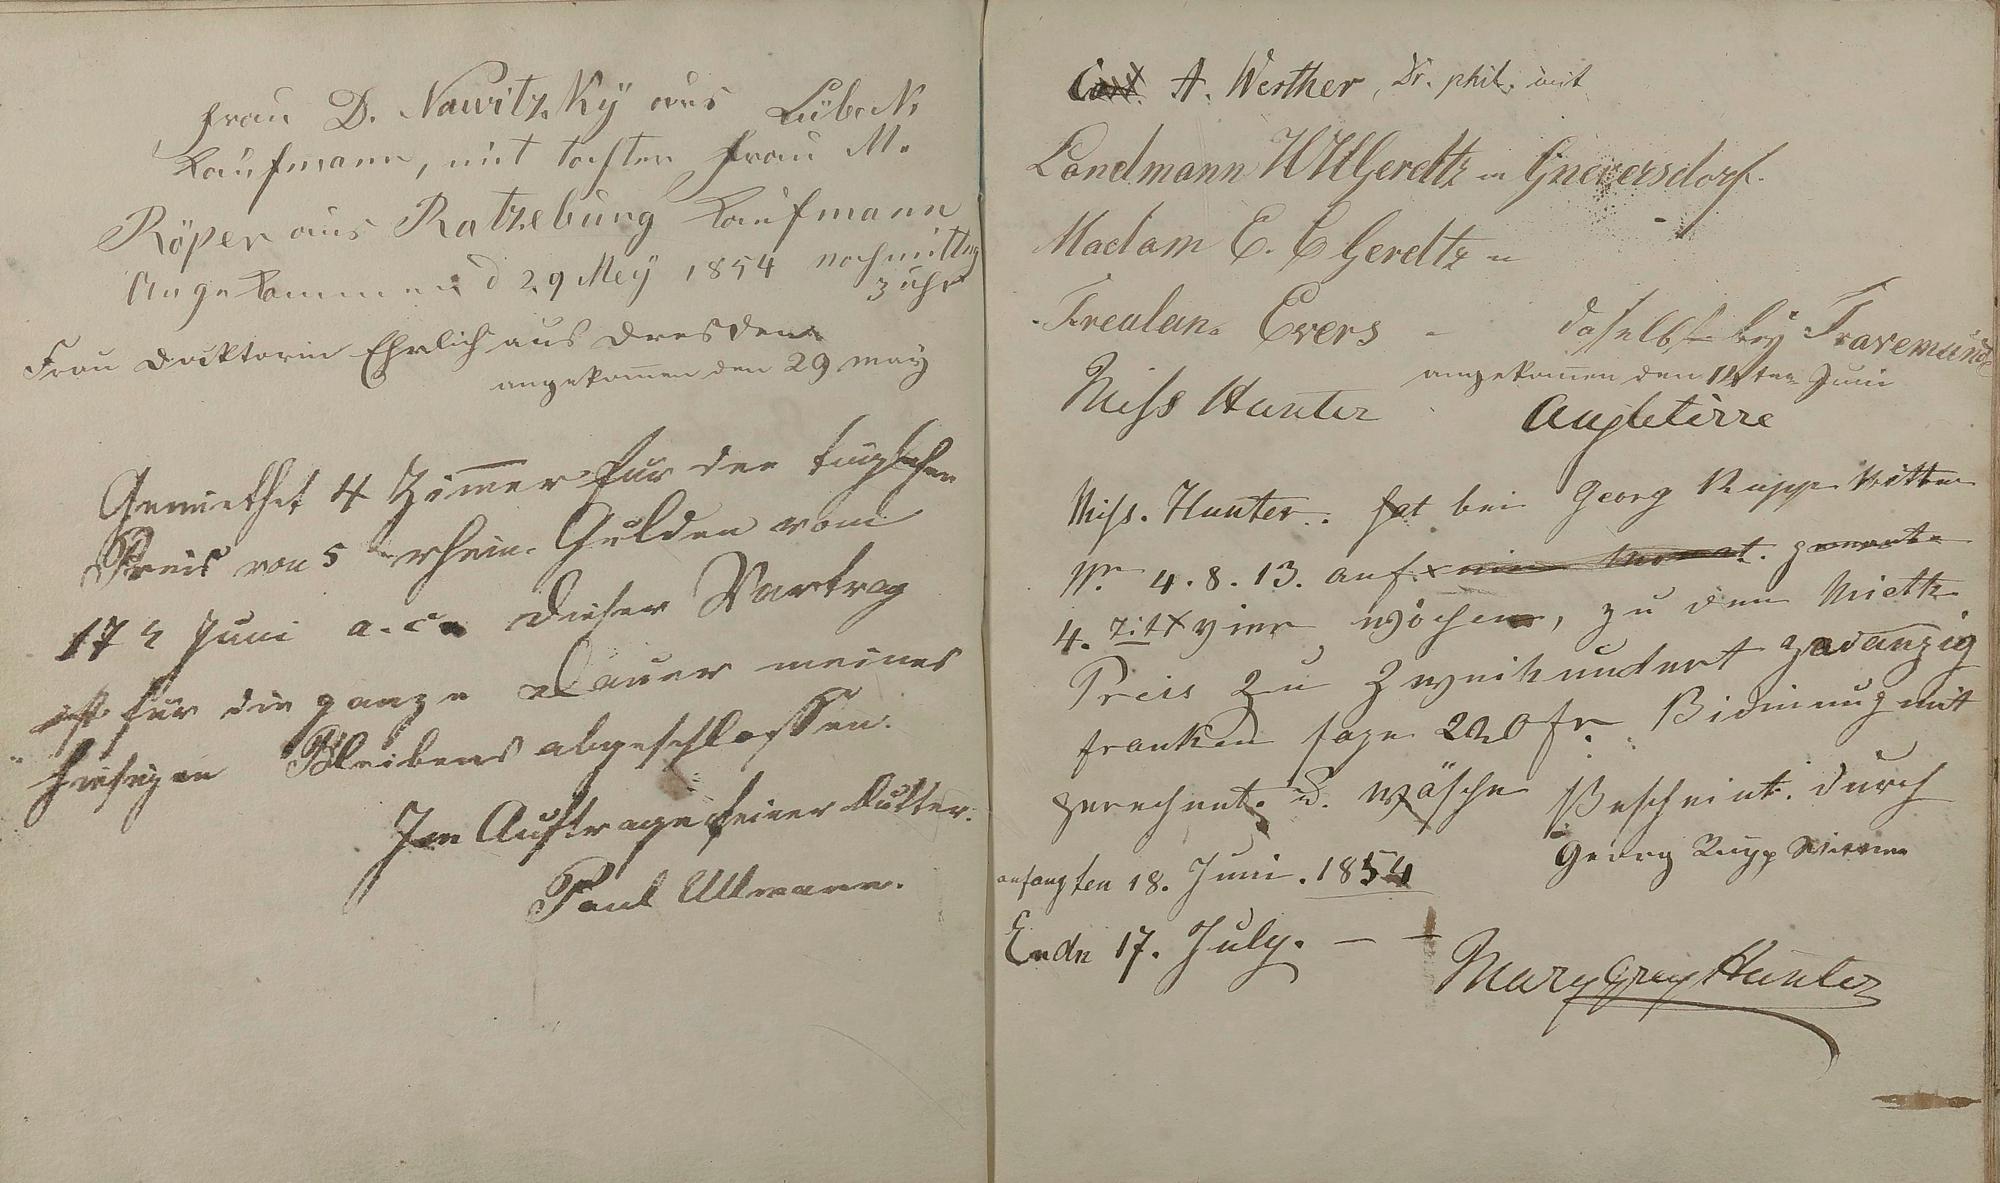 Frau D. Nawitzky aus Lübeck
Kaufmann, mit tochter, frau M.
Röper aus Ratzebung Kaufmann
Angekommen d 29 Mey 1854 nachmittag
3 uhr
Frau Docktorin Ehrlich aus Dresden
angekomen den 29 may
Gemiethet 4 Zimmer für den täglichen
Preis von 5 rhein. Gulden vom
17 Juni a. c. Dieser Vertrag
ist für die ganze Dauer meines
hiesigen Bleibens abgeschlossen.
Im Auftrage seiner Mutter.
Paul Ullmann.
A. Werther, Dr. phil. mit
Landmann Gerdtz in Gneversdorf.
Madam E. C Gerdtz
Freulen Evers daselbst bey Travemünde
angekomen den ten Juni
Miss Hunter Angleterre
Miss. Hunter. hat bei Georg Rupp Wittwe
Nr. 4. 8. 13. auf ein Monat.
4. vier Wochen, zu dem Mieth
Preis zu Zweihundert zwanzig
franken sage 220 fr. Bedienung mit
gerechnet. Wäsche Bescheint. durch
Georg Rupp Wittwe
anfang ten 18. Juni. 1854
Ende 17. July. — —
Mary Grey Hunter